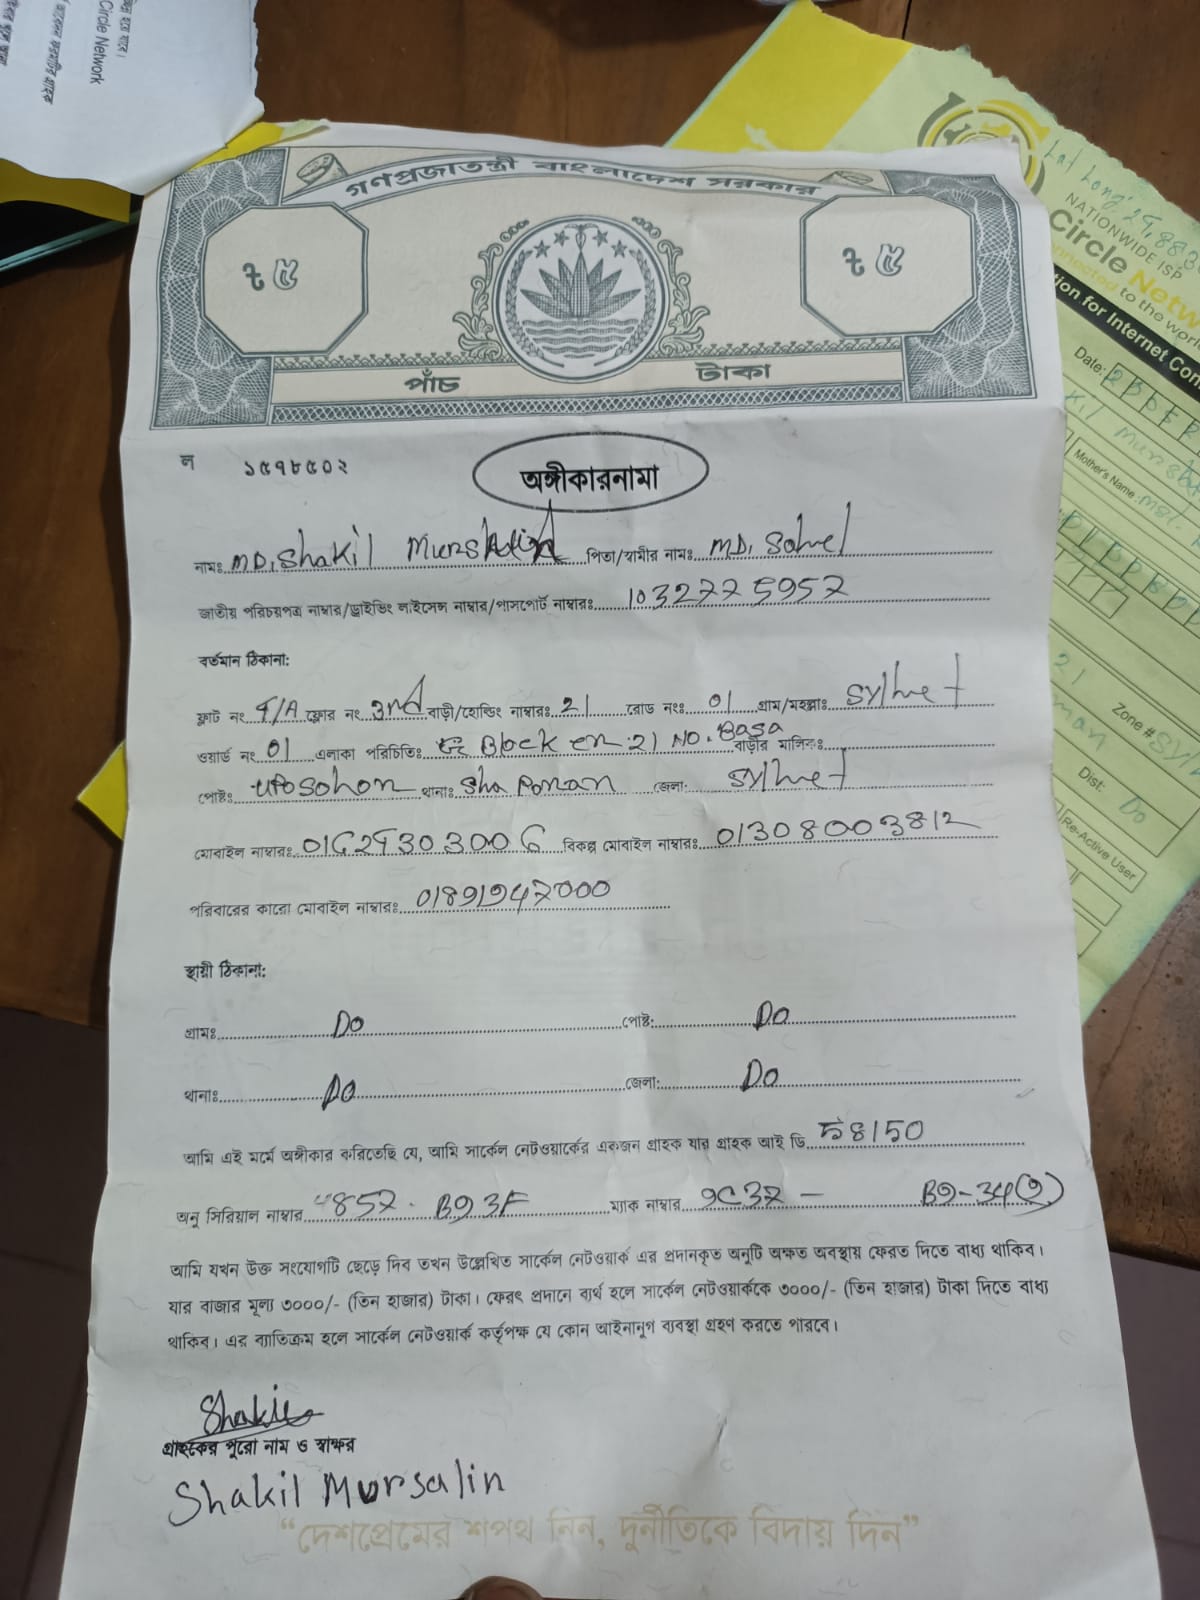 গণপ্রজাতন্ত্রী বাংলাদেশ সরকার
৳ ৫
৳ ৫
পাঁচ টাকা
ল ১৫৭৮৫০২
অঙ্গীকারনামা
নামঃ MD. Shakil পিতা/স্বামীর নামঃ MD. Sohel
জাতীয় পরিচয়পত্র নাম্বার/ড্রাইভিং লাইসেন্স নাম্বার/পাসপোর্ট নাম্বারঃ 1032775957
বর্তমান ঠিকানা:
ফ্লাট নং ফ্লোর নং 3rd বাড়ী/হোল্ডিং নাম্বারঃ 21 রোড নংঃ 01 গ্রাম/মহল্লাঃ Sylhet
ওয়ার্ড নং 01 এলাকা পরিচিতিঃ Block en 21 NO. Basa বাড়ীর মালিকঃ
পোষ্টঃ UPosohon থানাঃ Sha Poran জেলা: Sylhet
মোবাইল নাম্বারঃ বিকল্প মোবাইল নাম্বারঃ 01308003812
পরিবারের কারো মোবাইল নাম্বারঃ 01891947000
স্থায়ী ঠিকানা:
গ্রামঃ Do পোষ্ট: Do
থানাঃ Do জেলা: Do
আমি এই মর্মে অঙ্গীকার করিতেছি যে, আমি সার্কেল নেটওয়ার্কের একজন গ্রাহক যার গ্রাহক আই ডি 58150
অনু সিরিয়াল নাম্বার B93F ম্যাক নাম্বার 9C37 - B9-34(9)
আমি যখন উক্ত সংযোগটি ছেড়ে দিব তখন উল্লেখিত সার্কেল নেটওয়ার্ক এর প্রদানকৃত অনুটি অক্ষত অবস্থায় ফেরত দিতে বাধ্য থাকিব।
যার বাজার মূল্য ৩০০০/- (তিন হাজার) টাকা। ফেরৎ প্রদানে ব্যর্থ হলে সার্কেল নেটওয়ার্ককে ৩০০০/- (তিন হাজার) টাকা দিতে বাধ্য
থাকিব। এর ব্যাতিক্রম হলে সার্কেল নেটওয়ার্ক কর্তৃপক্ষ যে কোন আইনানুগ ব্যবস্থা গ্রহণ করতে পারবে।
Shakil
গ্রাহকের পুরো নাম ও স্বাক্ষর
Shakil Mursalin
“দেশপ্রেমের শপথ নিন, দুর্নীতিকে বিদায় দিন”
Circle Network
Lat Long:
NATIONWIDE ISP
Circle Netw
onnected to the worl
ion for Internet Con
Date:
Mother's Name:
Zone #
Dist: Do
Re-Active User